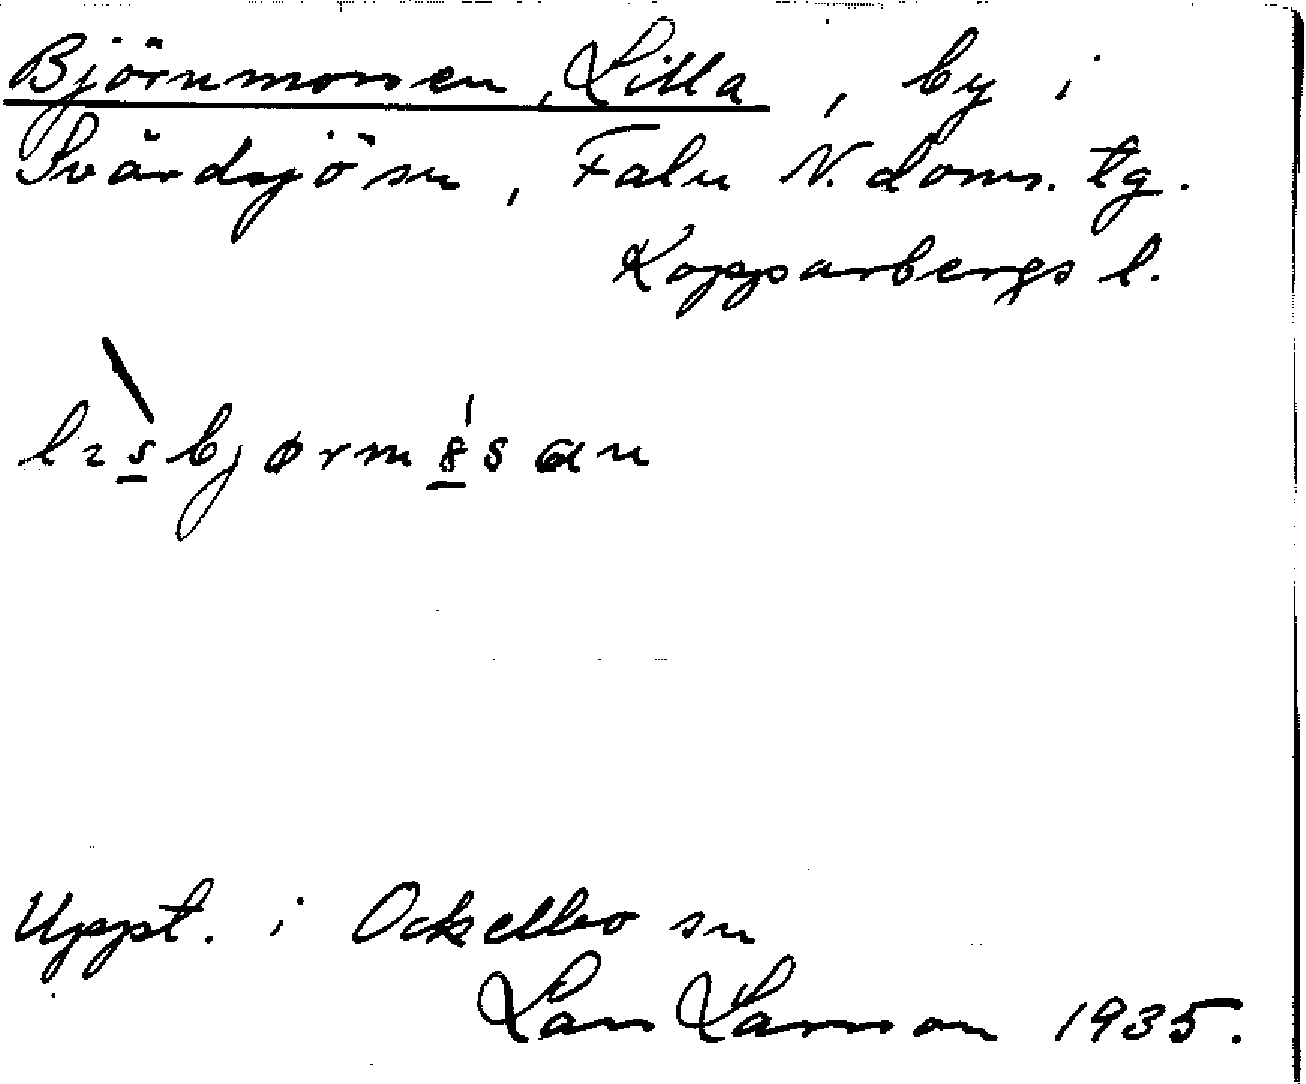 Björnmorsen, Lilla, by i
Svärdsjö sn, Falu N. doms. tg.
Kopparbergs l.
Uppt. i Ockelbo sn
Lars Larsson 1935.